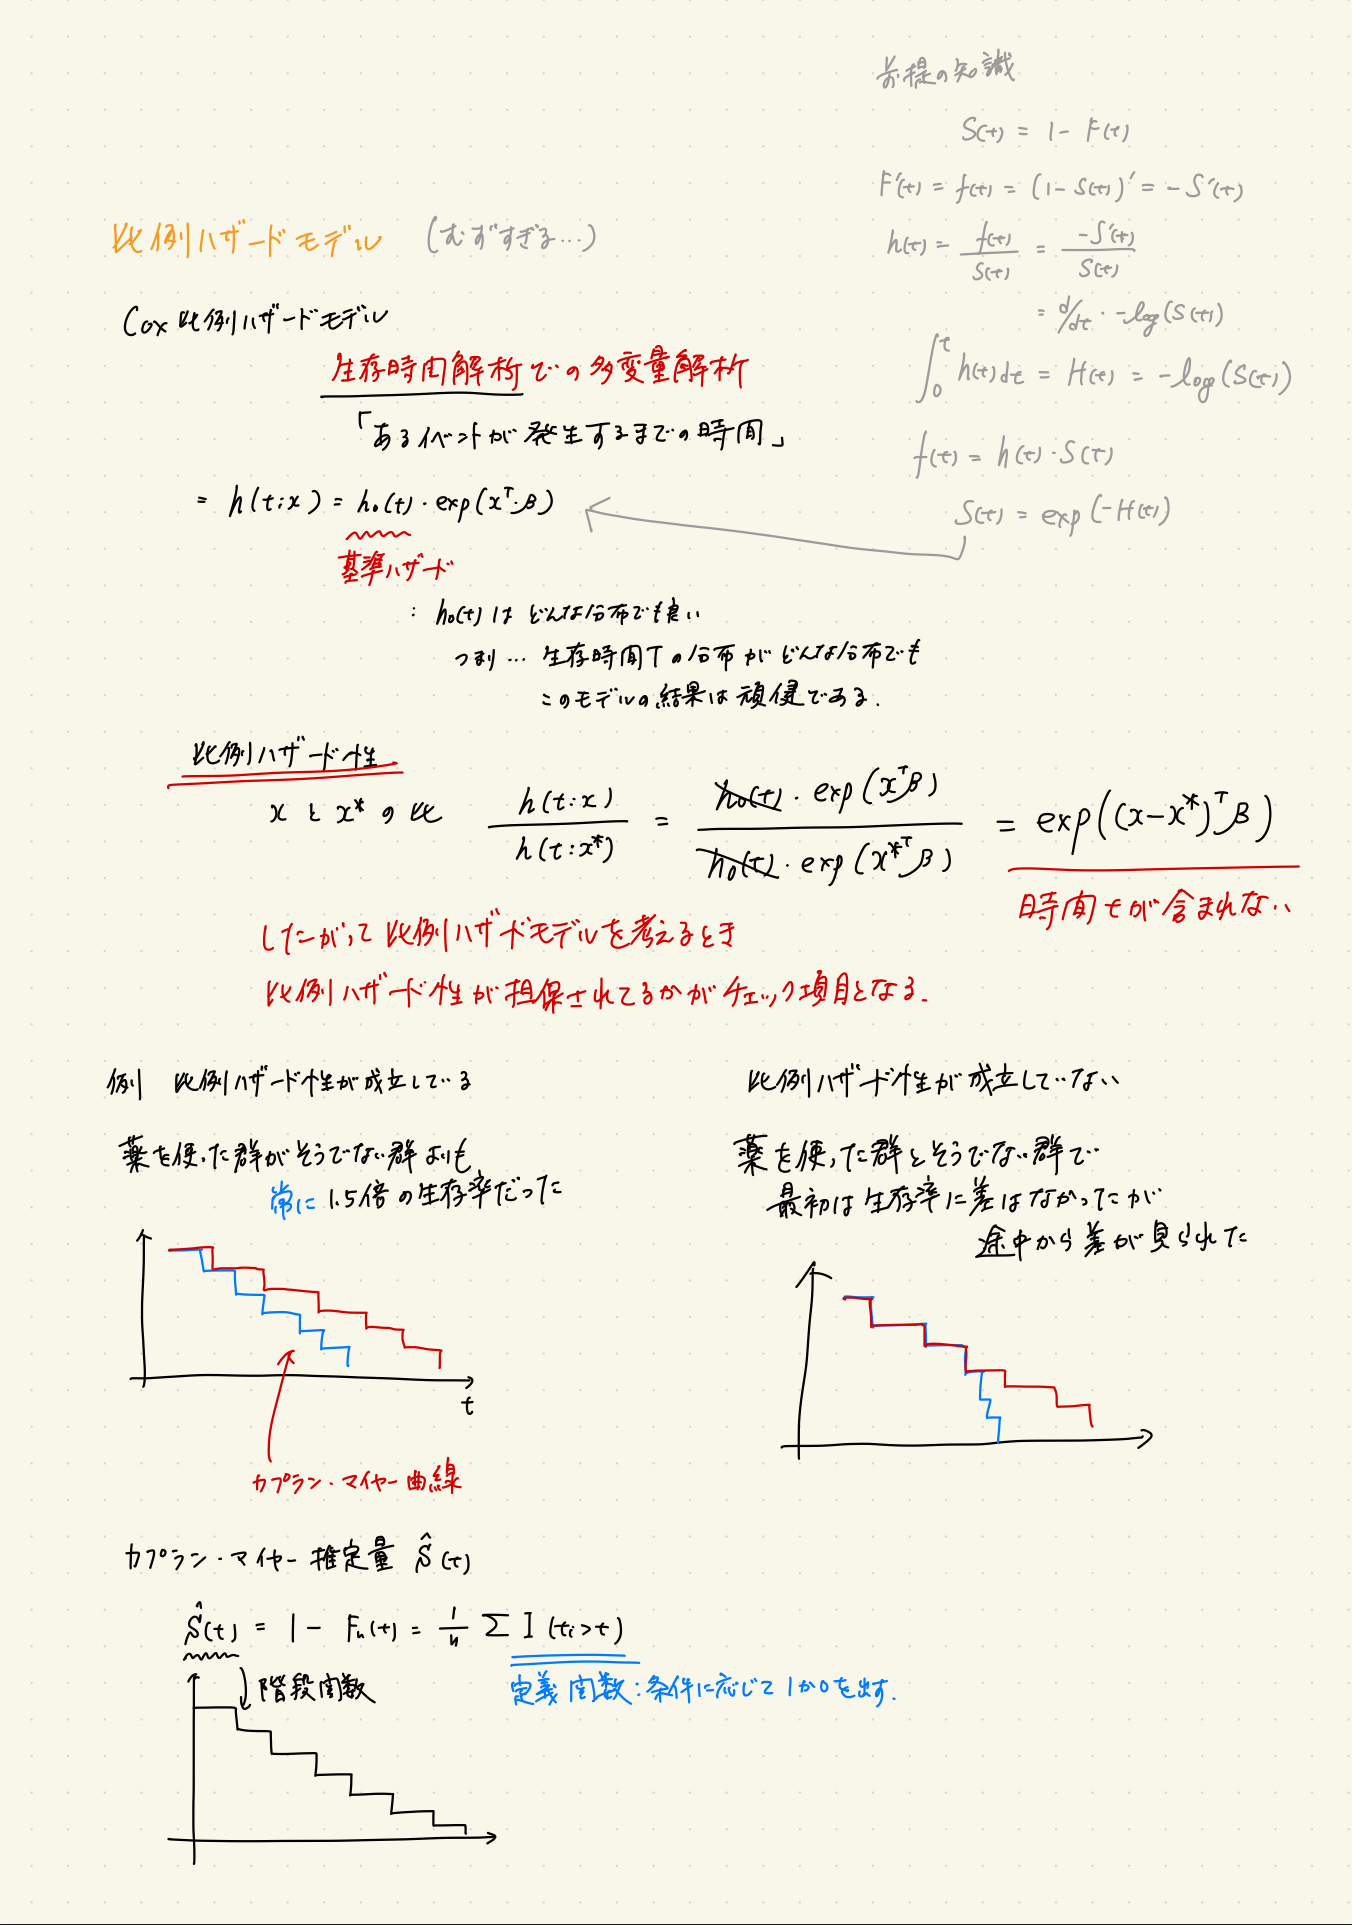 前提の知識
S(t) = 1 - F(t)
F'(t) = f(t) = (1 - S(t))' = -S'(t)
h(t) = f(t)/S(t) = -S'(t)/S(t)
= d/dt · -log(S(t))
∫₀ᵗ h(t)dt = H(t) = -log(S(t))
f(t) = h(t)·S(t)
S(t) = exp(-H(t))
比例ハザードモデル (むずすぎる...)
Cox 比例ハザードモデル
生存時間解析での多変量解析
「あるイベントが発生するまでの時間」
= h(t:x) = h₀(t)·exp(xᵀ·β)
基準ハザード
: h₀(t)はどんな分布でも良い
つまり... 生存時間Tの分布がどんな分布でも
このモデルの結果は頑健である.
比例ハザード性
x と x* の比 h(t:x)/h(t:x*) = h₀(t)·exp(xᵀβ)/h₀(t)·exp(x*ᵀβ) = exp((x-x*)ᵀβ)
時間tが含まれない
したがって比例ハザードモデルを考えるとき
比例ハザード性が担保されてるかがチェック項目となる.
例 比例ハザード性が成立している
薬を使った群がそうでない群よりも
常に1.5倍の生存率だった
t
カプラン・マイヤー曲線
比例ハザード性が成立していない
薬を使った群とそうでない群で
最初は生存率に差はなかったが
途中から差が見られた
カプラン・マイヤー推定量 Ŝ(t)
Ŝ(t) = 1 - Fn(t) = 1/n Σ I (ti>t)
階段関数
定義関数:条件に応じて1か0を出す.